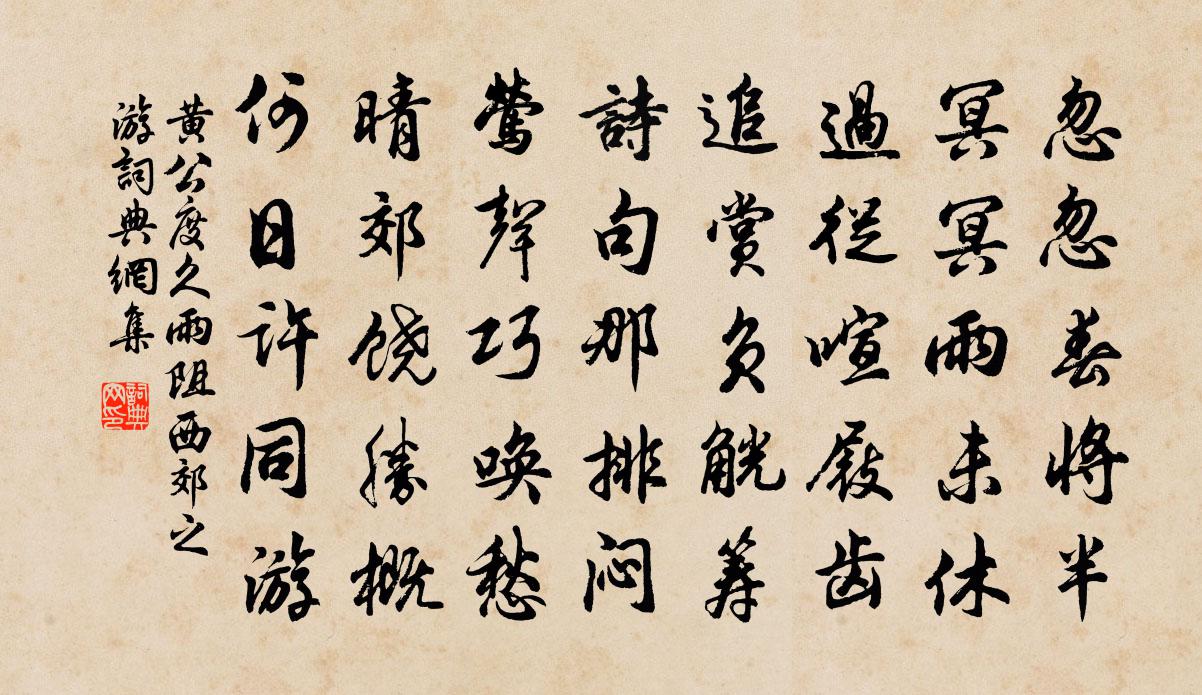 忽忽春將半
冥冥雨未休
過從喧屐齒
追賞負觥籌
詩句那排悶
鶯聲巧喚愁
晴郊饒勝概
何日許同游
黄公度久雨阻西郊之
游詞典網集
詞典网印